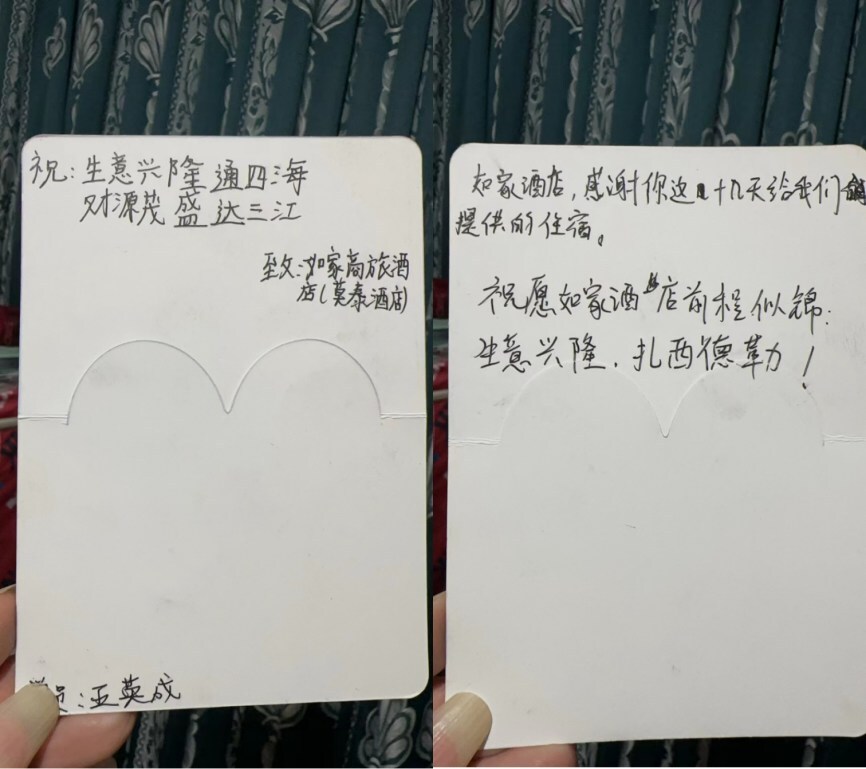 祝：生意兴隆通四海
财源茂盛达三江
致：如家商旅酒
店（莫泰酒店）
学员：王英成
如家酒店，感谢你这几十几天给我们
提供的住宿。
祝愿如家酒店前程似锦：
生意兴隆．扎西德勒！